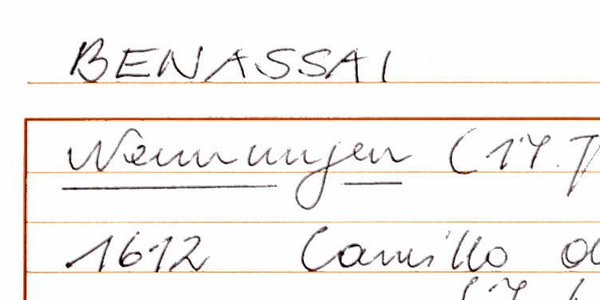 BENASSAI
Nennungen (17. J
1612 Camillo d